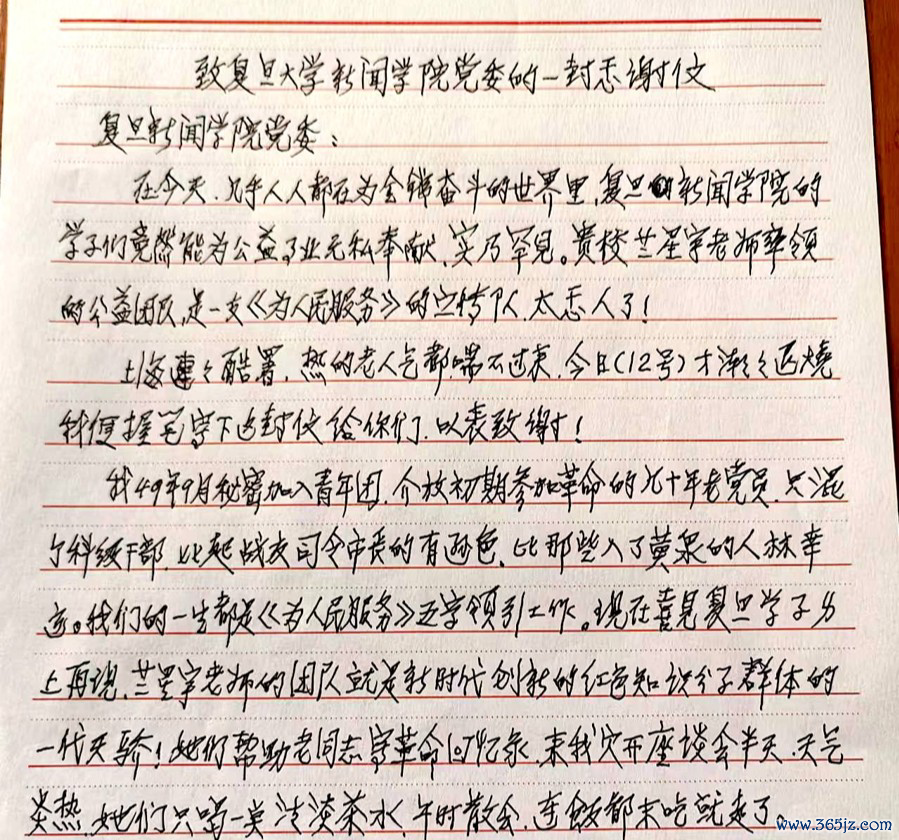 致复旦大学新闻学院党委的一封感谢信
复旦新闻学院党委：
在今天、几乎人人都在为金钱奋斗的世界里，复旦的新闻学院的
学子们竟然能为公益事业无私奉献，实乃罕见。贵校兰星宇老师率领
的公益团队，是一支《为人民服务》的宣传队，太感人了！
上海连々酷署，热的老人气都喘不过来，今日（12号）才渐々退燒
我便握笔写下这封信给你们，以表致谢！
我49年9月秘密加入青年团，介放初期参加革命的九十年老党员，只混
个科级干部，比起战友司令市长的有逊色，比那些入了黄泉的人林幸
运。我们的一生都是《为人民服务》五字领引工作。现在喜见复旦学子身
上再现，兰星宇老师的团队就是新时代创新的红色知识分子群体的
一代天骄！她们帮助老同志写革命回忆录，来我家开座谈会半天，天气
炎热，她们只喝一杯淡茶水，午时散会，连飯都未吃就走了。
www.365jz.com